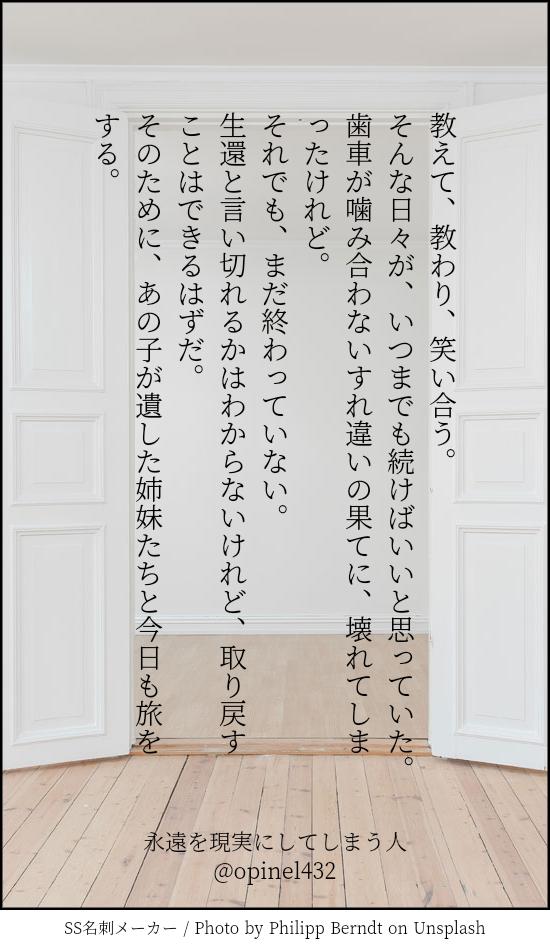 教えて、教わり、笑い合う。
そんな日々が、いつまでも続けばいいと思っていた。
歯車が噛み合わないすれ違いの果てに、壊れてしま
ったけれど。
それでも、まだ終わっていない。
生還と言い切れるかはわからないけれど、取り戻す
ことはできるはずだ。
そのために、あの子が遺した姉妹たちと今日も旅を
する。
永遠を現実にしてしまう人
@opinel432
SS名刺メーカー / Photo by Philipp Berndt on Unsplash